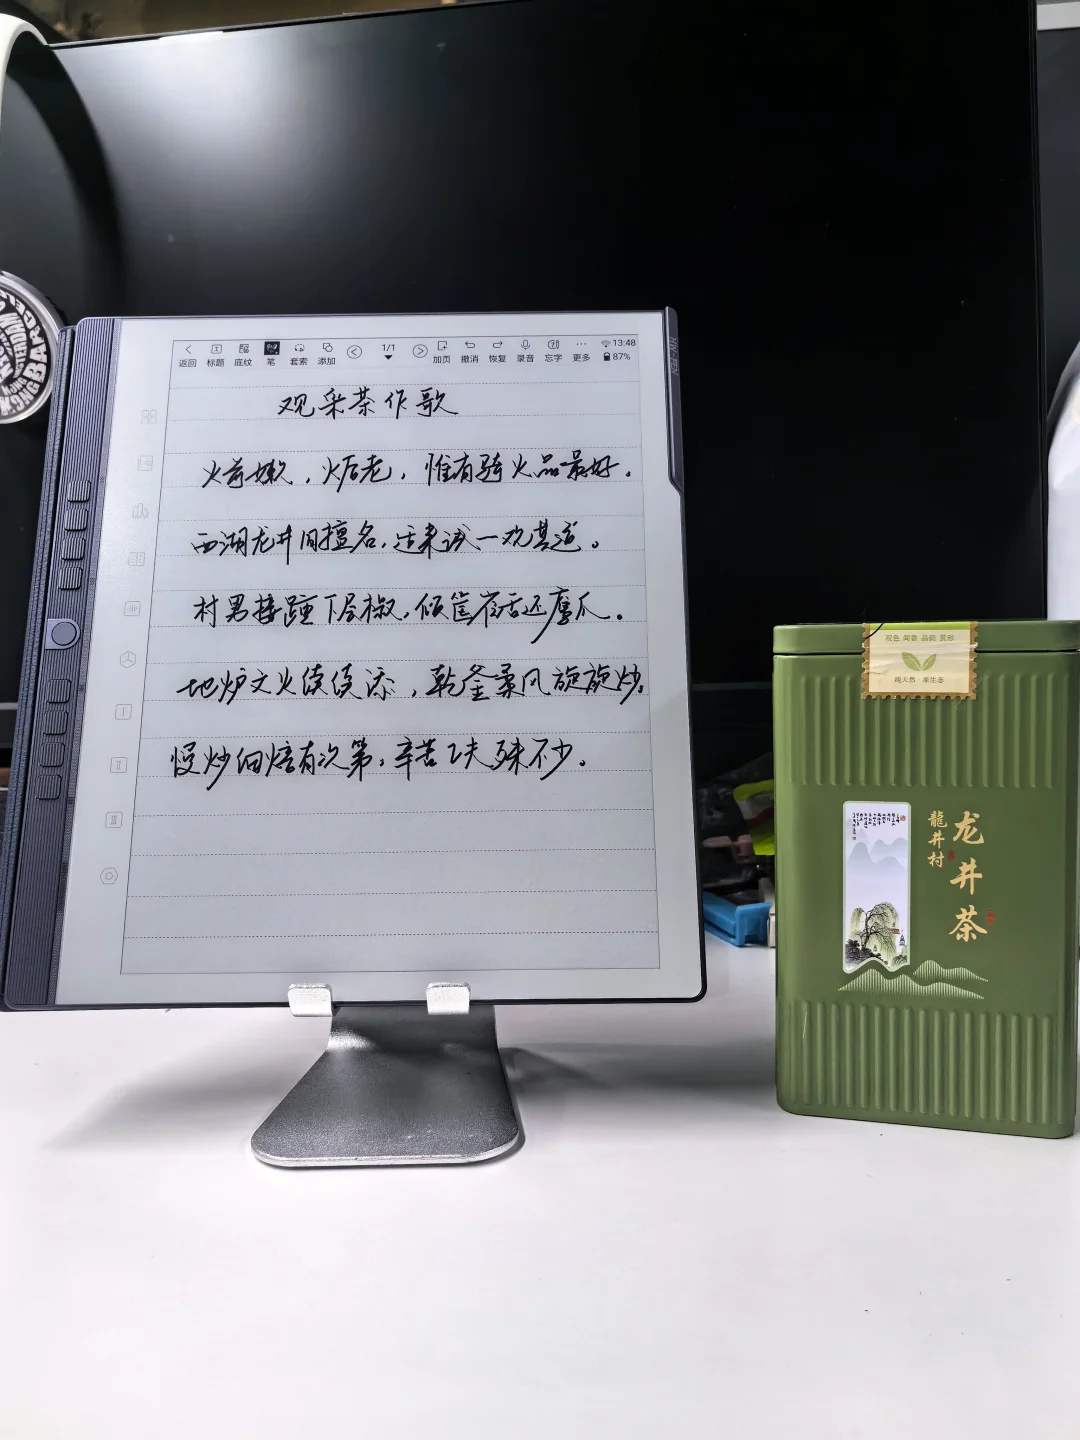 返回 标题 底纹 笔 套索 添加 1/1 加页 撤消 恢复 录音 忘字 更多 13:48 87%
观采茶作歌
火前嫩，火后老，惟有骑火品最好。
西湖龙井旧擅名，适来试一观其道。
村男接踵下层椒，倾筐雀舌还鹰爪。
地炉文火续续添，乾釜柔风旋旋炒。
慢炒细焙有次第，辛苦工夫殊不少。
观色 闻香 品韵 赏形
纯天然·原生态
龙井茶
龍井村